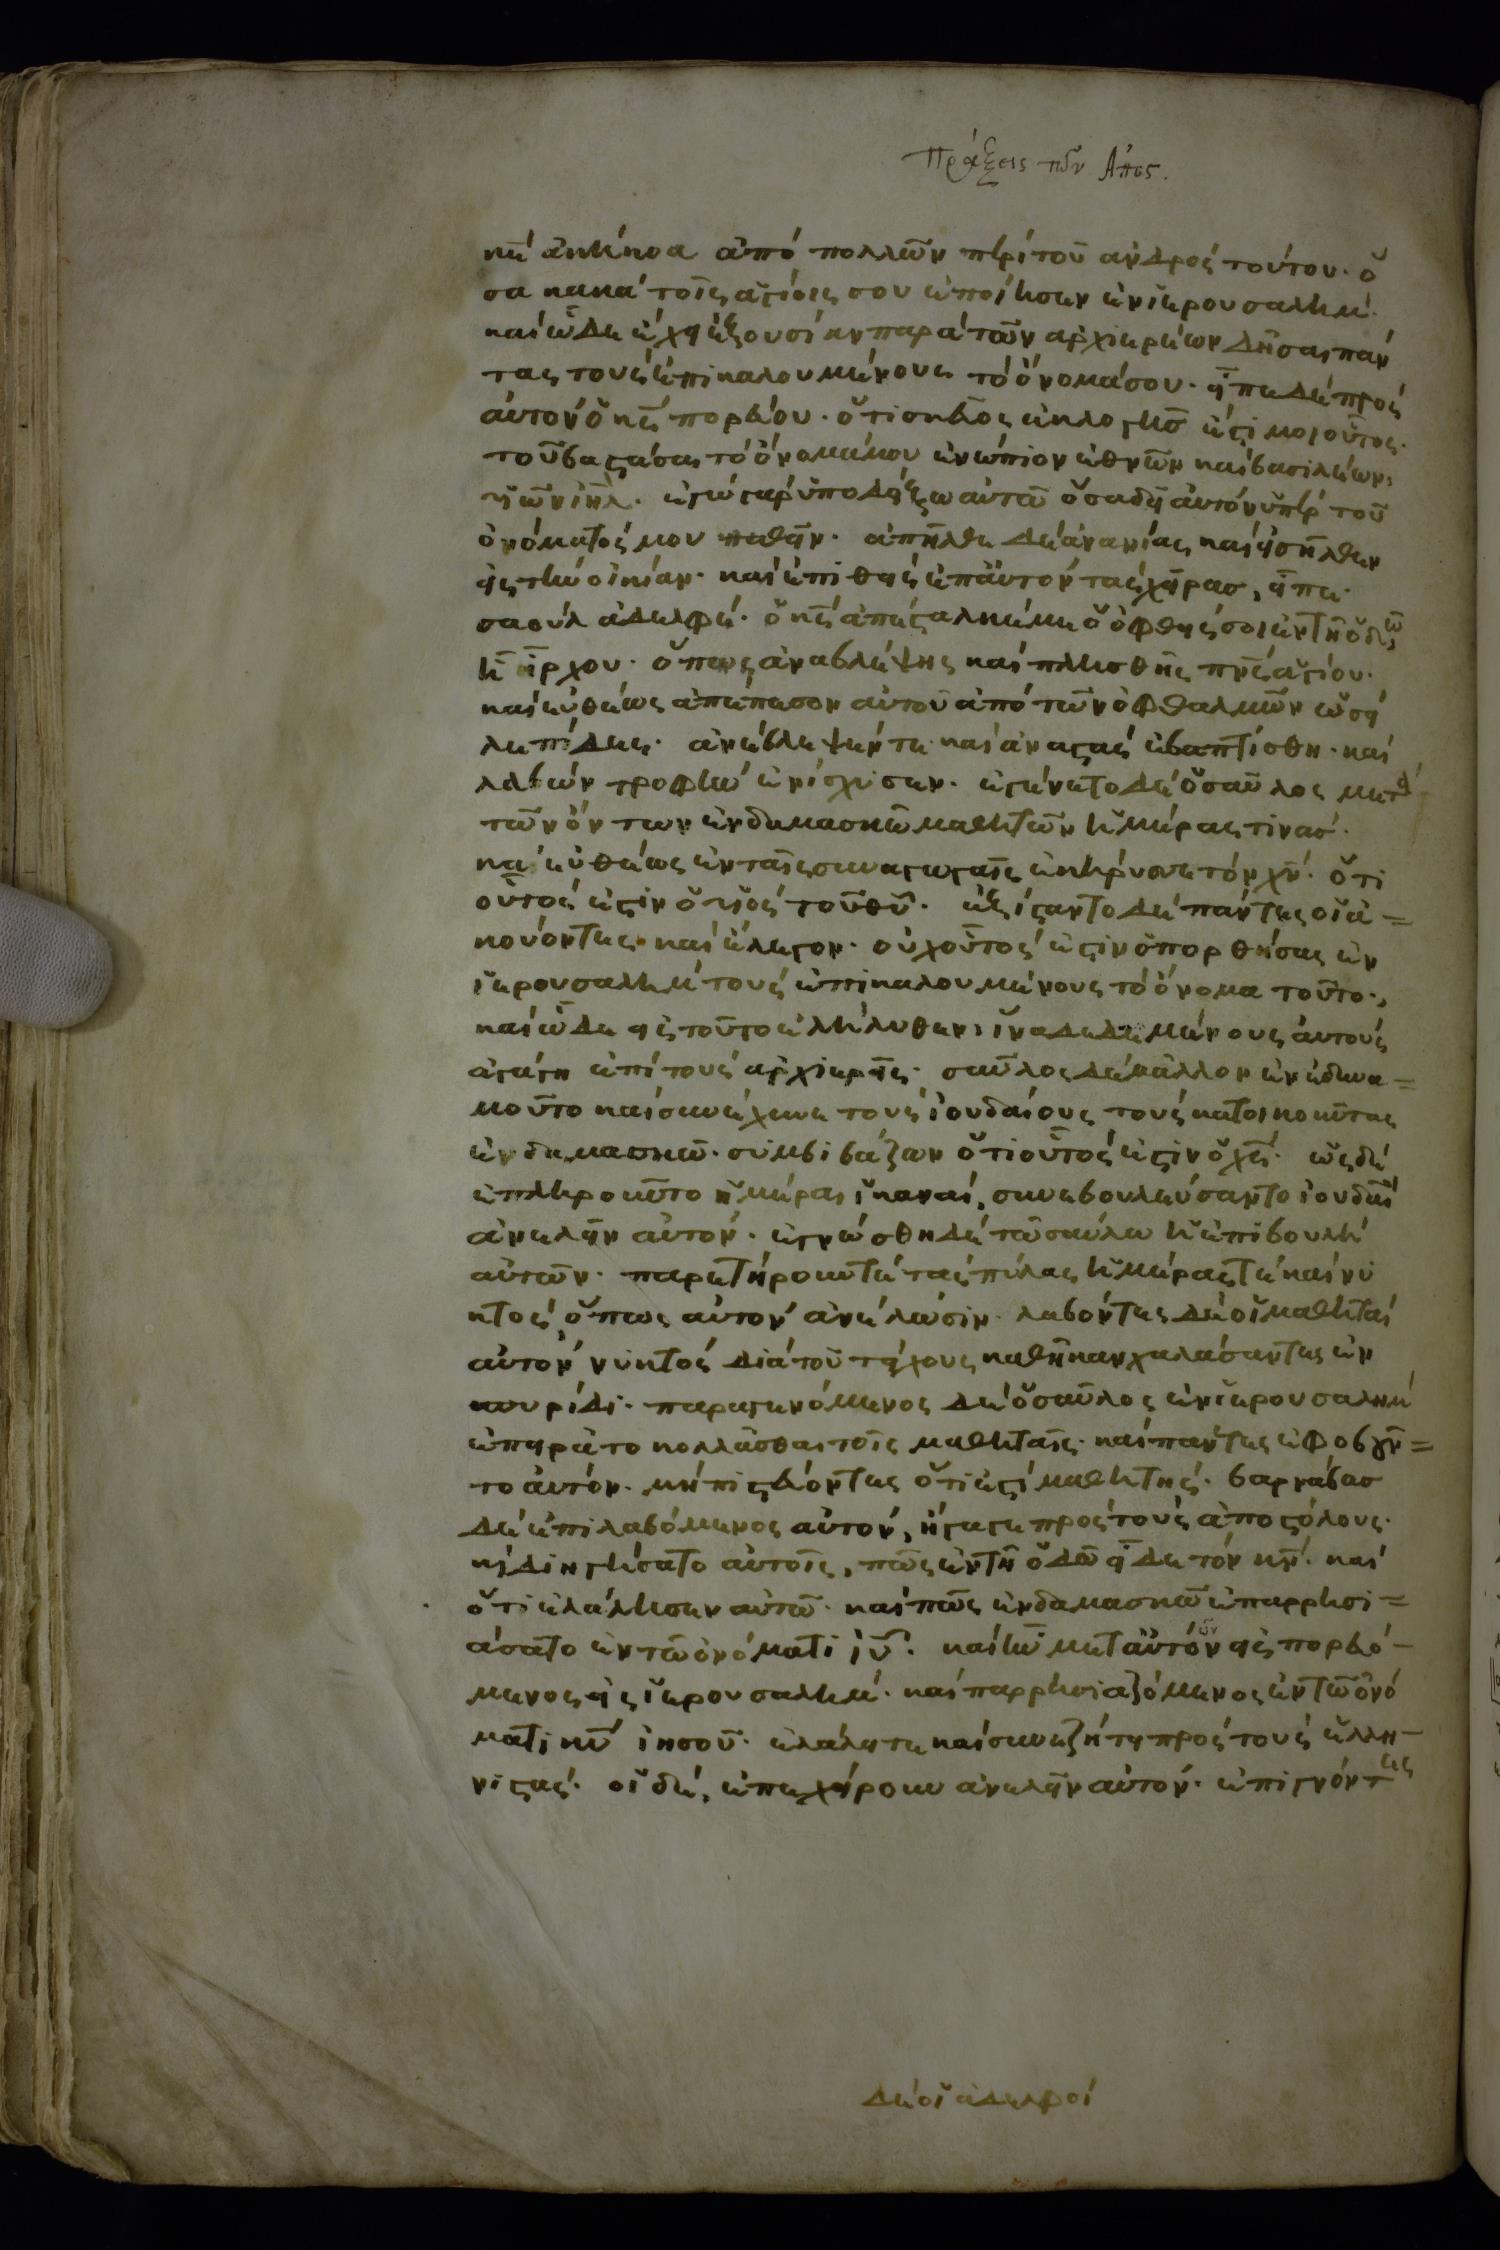 Πράξεις τῶν Ἀπος.
κε̅ ἀκήκοα ἀπὸ πολλῶν περὶ τοῦ ἀνδρὸς τούτου· ὅ
σα κακὰ τοῖς ἁγίοις σου ἐποίησεν ἐν ἱερουσαλὴμ·
καὶ ὧδε ἔχει ἐξουσίαν παρὰ τῶν ἀρχιερέων δῆσαι πάν
τας τοὺς ἐπικαλουμένους τὸ ὄνομά σου· εἶπε δὲ πρὸς
αὐτὸν ὁ κς̅ πορεύου· ὅτι σκεῦος ἐκλογῆσ ἐστί μοι οὗτος·
τοῦ βαστάσαι τὸ ὄνομά μου ἐνώπιον ἐθνῶν καὶ βασιλέων,
υἱῶν ιη̅λ· ἐγὼ γὰρ ὑποδείξω αὐτῶ ὅσα δεῖ αὐτὸν ὑπὲρ τοῦ
ὀνόματός μου παθεῖν· ἀπῆλθε δὲ ἀνανίας καὶ εἰσῆλθεν
εἰς τὴν οἰκίαν· καὶ ἐπιθεὶς ἐπ αὐτὸν τὰς χεῖρασ, εἶπε·
σαοὺλ ἀδελφέ· ὁ κς̅ ἀπέσταλκέ με ὁ ὀφθείς σοι ἐν τῆ ὁδῶ
ἧ ἤρχου· ὅπως ἀναβλέψης καὶ πλησθῆς πνς̅ ἁγίου·
καὶ εὐθέως ἀπέπεσον αὐτοῦ ἀπὸ τῶν ὀφθαλμῶν ὡσεὶ
λεπίδες· ἀνέβλεψέν τε καὶ ἀναστὰς ἐβαπτίσθη· καὶ
λαβὼν τροφὴν ἐνίσχυσεν· ἐγένετο δὲ ὁ σαῦλος μετὰ
τῶν ὄντων ἐν δαμασκῶ μαθητῶν ἡμέρας τινάσ·
καὶ εὐθέως ἐν ταῖς συναγωγαῖς ἐκήρυσσε τὸν χν̅· ὅτι
οὗτός ἐστιν ὁ υἱὸς τοῦ θυ̅· ἐξίσταντο δὲ πάντες οἱ ἀ=
κούοντες καὶ ἔλεγον· οὐχ οὗτός ἐστιν ὁ πορθήσας ἐν
ἱερουσαλὴμ τοὺς ἐπικαλουμένους τὸ ὄνομα τοῦτο·,
καὶ ὧδε εἰς τοῦτο ἐλήλυθεν, ἵνα δεδεμένους αὐτοὺς
ἀγάγη ἐπὶ τοὺς ἀρχιερεῖς· σαῦλος δὲ μᾶλλον ἐνεδυνα=
μοῦτο καὶ συνέχεε τοὺς ἰουδαίους τοὺς κατοικοῦντας
ἐν δαμασκῶ· συμβιβάζων ὅτι οὗτός ἐστιν ὁ χς̅· ὡς δὲ
ἐπληροῦντο ἡμέραι ἱκαναί, συνεβουλεύσαντο ἰουδαῖοι
ἀνελεῖν αὐτόν· ἐγνώσθη δὲ τῶ σαύλω ἡ ἐπιβουλὴ
αὐτῶν· παρετήρουν τὲ τὰς πύλας ἡμέρας τὲ καὶ νυ
κτὸς ὅπως αὐτὸν ἀνέλωσιν· λαβόντες δὲ οἱ μαθηταὶ
αὐτὸν νυκτὸς διὰ τοῦ τείχους καθῆκαν χαλάσαντες ἐν
σπυρίδι· παραγενόμενος δὲ ὁ σαῦλος ἐν ἱερουσαλὴμ
ἐπειρᾶτο κολλᾶσθαι τοῖς μαθηταῖς· καὶ πάντες ἐφοβοῦν=
το αὐτόν· μὴ πιστεύοντες ὅτι ἐστὶ μαθητής· βαρνάβασ
δὲ ἐπιλαβόμενος αὐτὸν, ἤγαγε πρὸς τοὺς ἀποστόλους·
κὶ διηγήσατο αὐτοῖς, πῶς ἐν τῆ ὁδῶ εἶδε τὸν κν̅· καὶ
ὅτι ἐλάλησεν αὐτῶ· καὶ πῶς ἐν δαμασκῶ ἐπαρρησι=
άσατο ἐν τῶ ὀνόματι ιυ̅· καὶ ἦν μετ αὐτόν εἰς πορευό-
μενος εἰς ἱερουσαλὴμ· καὶ παρρησιαζόμενος ἐν τῶ ὀνό
ματι κυ̅ ἰησοῦ· ἐλάλει τε καὶ συνεζήτει πρὸς τοὺς ἑλλη-
νιστάς· οἱ δὲ, ἐπεχείρουν ἀνελεῖν αὐτόν· ἐπιγνόντες
δὲ οἱ ἀδελφοὶ